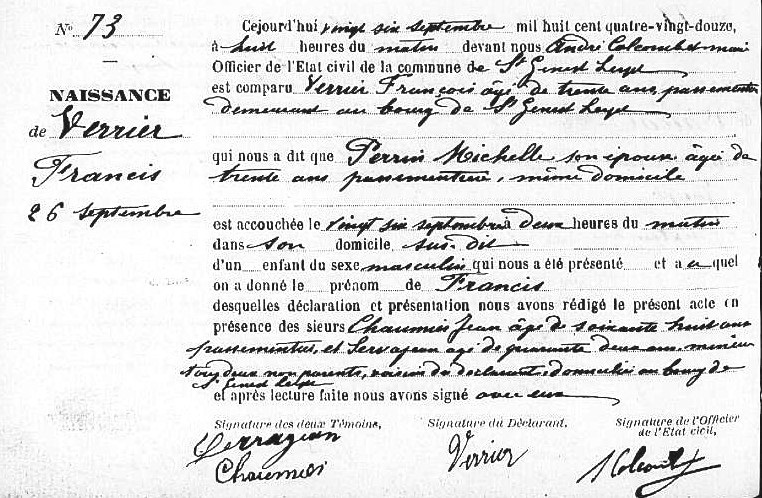 N° 73
NAISSANCE
de Verrier
Francis
26 septembre
Cejourd'hui vingt six septembre mil huit cent quatre-vingt-douze,
à huit heures du matin devant nous André Colcombet maire
Officier de l'Etat civil de la commune de St Genest Lerpt
est comparu Verrier François âgé de trente ans, passementier
demeurant au bourg de St Genest Lerpt
qui nous a dit que Perrin Michelle son épouse âgée de
trente ans passementière, même domicile
est accouchée le vingt six septembre à deux heures du matin
dans son domicile sus-dit
d'un enfant du sexe masculin qui nous a été présenté et auquel
on a donné le prénom de Francis
desquelles déclaration et présentation nous avons rédigé le présent acte en
présence des sieurs Chaumier Jean âgé de soixante huit ans
passementier, et Servajean âgé de quarante deux ans, mineur
tous deux non parents, voisins du déclarant, domiciliés au bourg de
St Genest Lerpt
et après lecture faite nous avons signé avec eux
Signature des deux Témoins, Signature du Déclarant. Signature de l'Officier
de l'Etat civil,
Servajean
Chaumier
Verrier